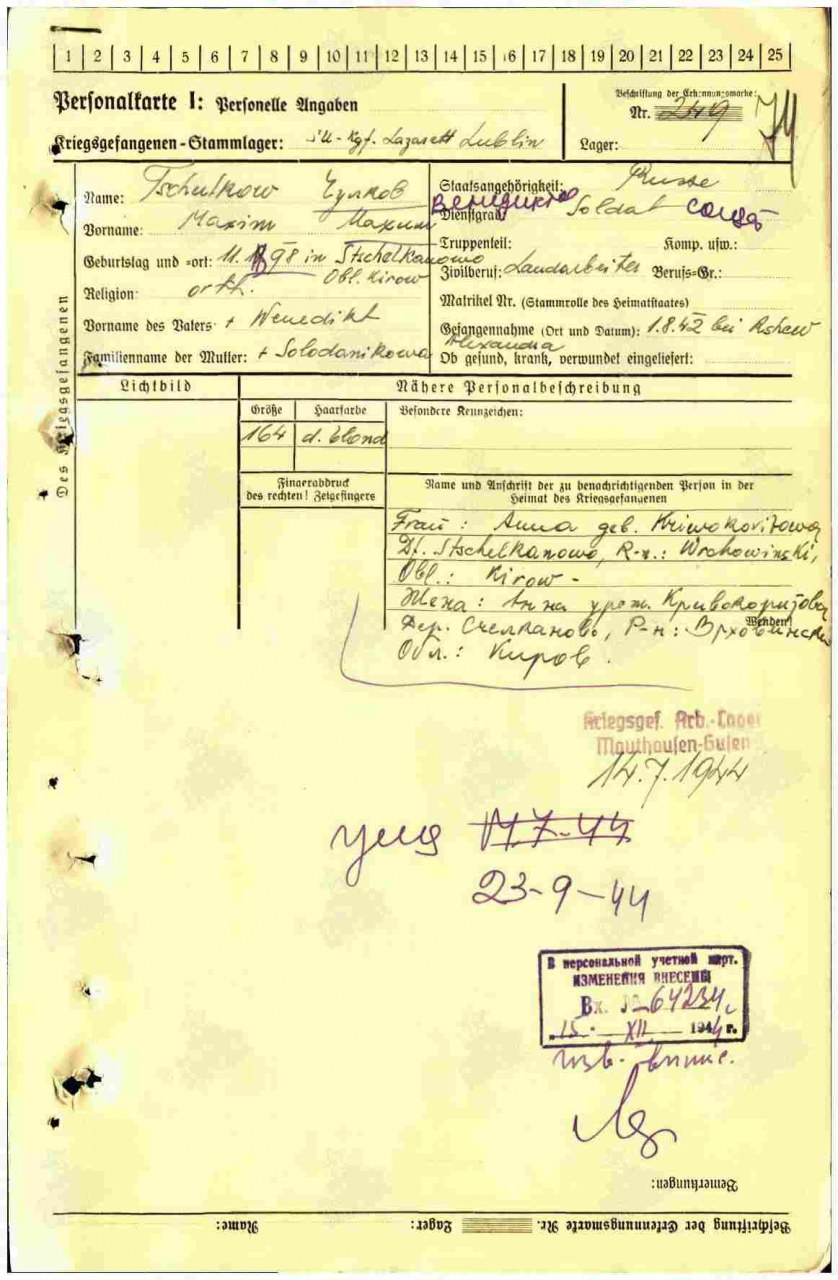 1 2 3 4 5 6 7 8 9 10 11 12 13 14 15 16 17 18 19 20 21 22 23 24 25
Personalkarte I: Personelle Angaben
Kriegsgefangenen-Stammlager: Kgf. Lazarett Lublin
Beschriftung der Erkennungsmarke:
Nr. 249
Lager:
74
Des Kriegsgefangenen
Name: Tschulkow Чулков
Vorname: Maxim Максим Венедикто
Geburtstag und =ort: 11. 98 in Stschelkanowo
Obl. Kirow
Religion: orth.
Vorname des Vaters: + Wenedikt
Familienname der Mutter: + Solodanikowa Alexandra
Staatsangehörigkeit: Russe
Dienstgrad: Soldat солд
Truppenteil: Komp. usw.:
Zivilberuf: Landarbeiter Berufs=Gr.:
Matrikel Nr. (Stammrolle des Heimatstaates)
Gefangennahme (Ort und Datum): 1.8.42 bei Rshew
Ob gesund, krank, verwundet eingeliefert:
Lichtbild
Nähere Personalbeschreibung
Größe Haarfarbe Besondere Kennzeichen:
164 d. blond
Fingerabdruck
des rechten! Zeigefingers
Name und Anschrift der zu benachrichtigenden Person in der
Heimat des Kriegsgefangenen
Frau: Anna geb. Kriwokoritowa
Df. Stschelkanowo, R-n.: Wrchowinski,
Obl.: Kirow -
Жена: Анна урож. Кривокоритова
Дер. Счелканово, Р-н: Врховински
Wenden!
Обл.: Киров.
Kriegsgef. Arb.-Lager
Mauthausen-Gusen
14.7.1944
17-7-44
23-9-44
В персональной учетной карт.
ИЗМЕНЕНИЯ ВНЕСЕНЫ
Вх. № 64234
15 XII 1944 г.
изв.
Bemerkungen:
Beschriftung der Erkennungsmarke Nr. Lager: Name: